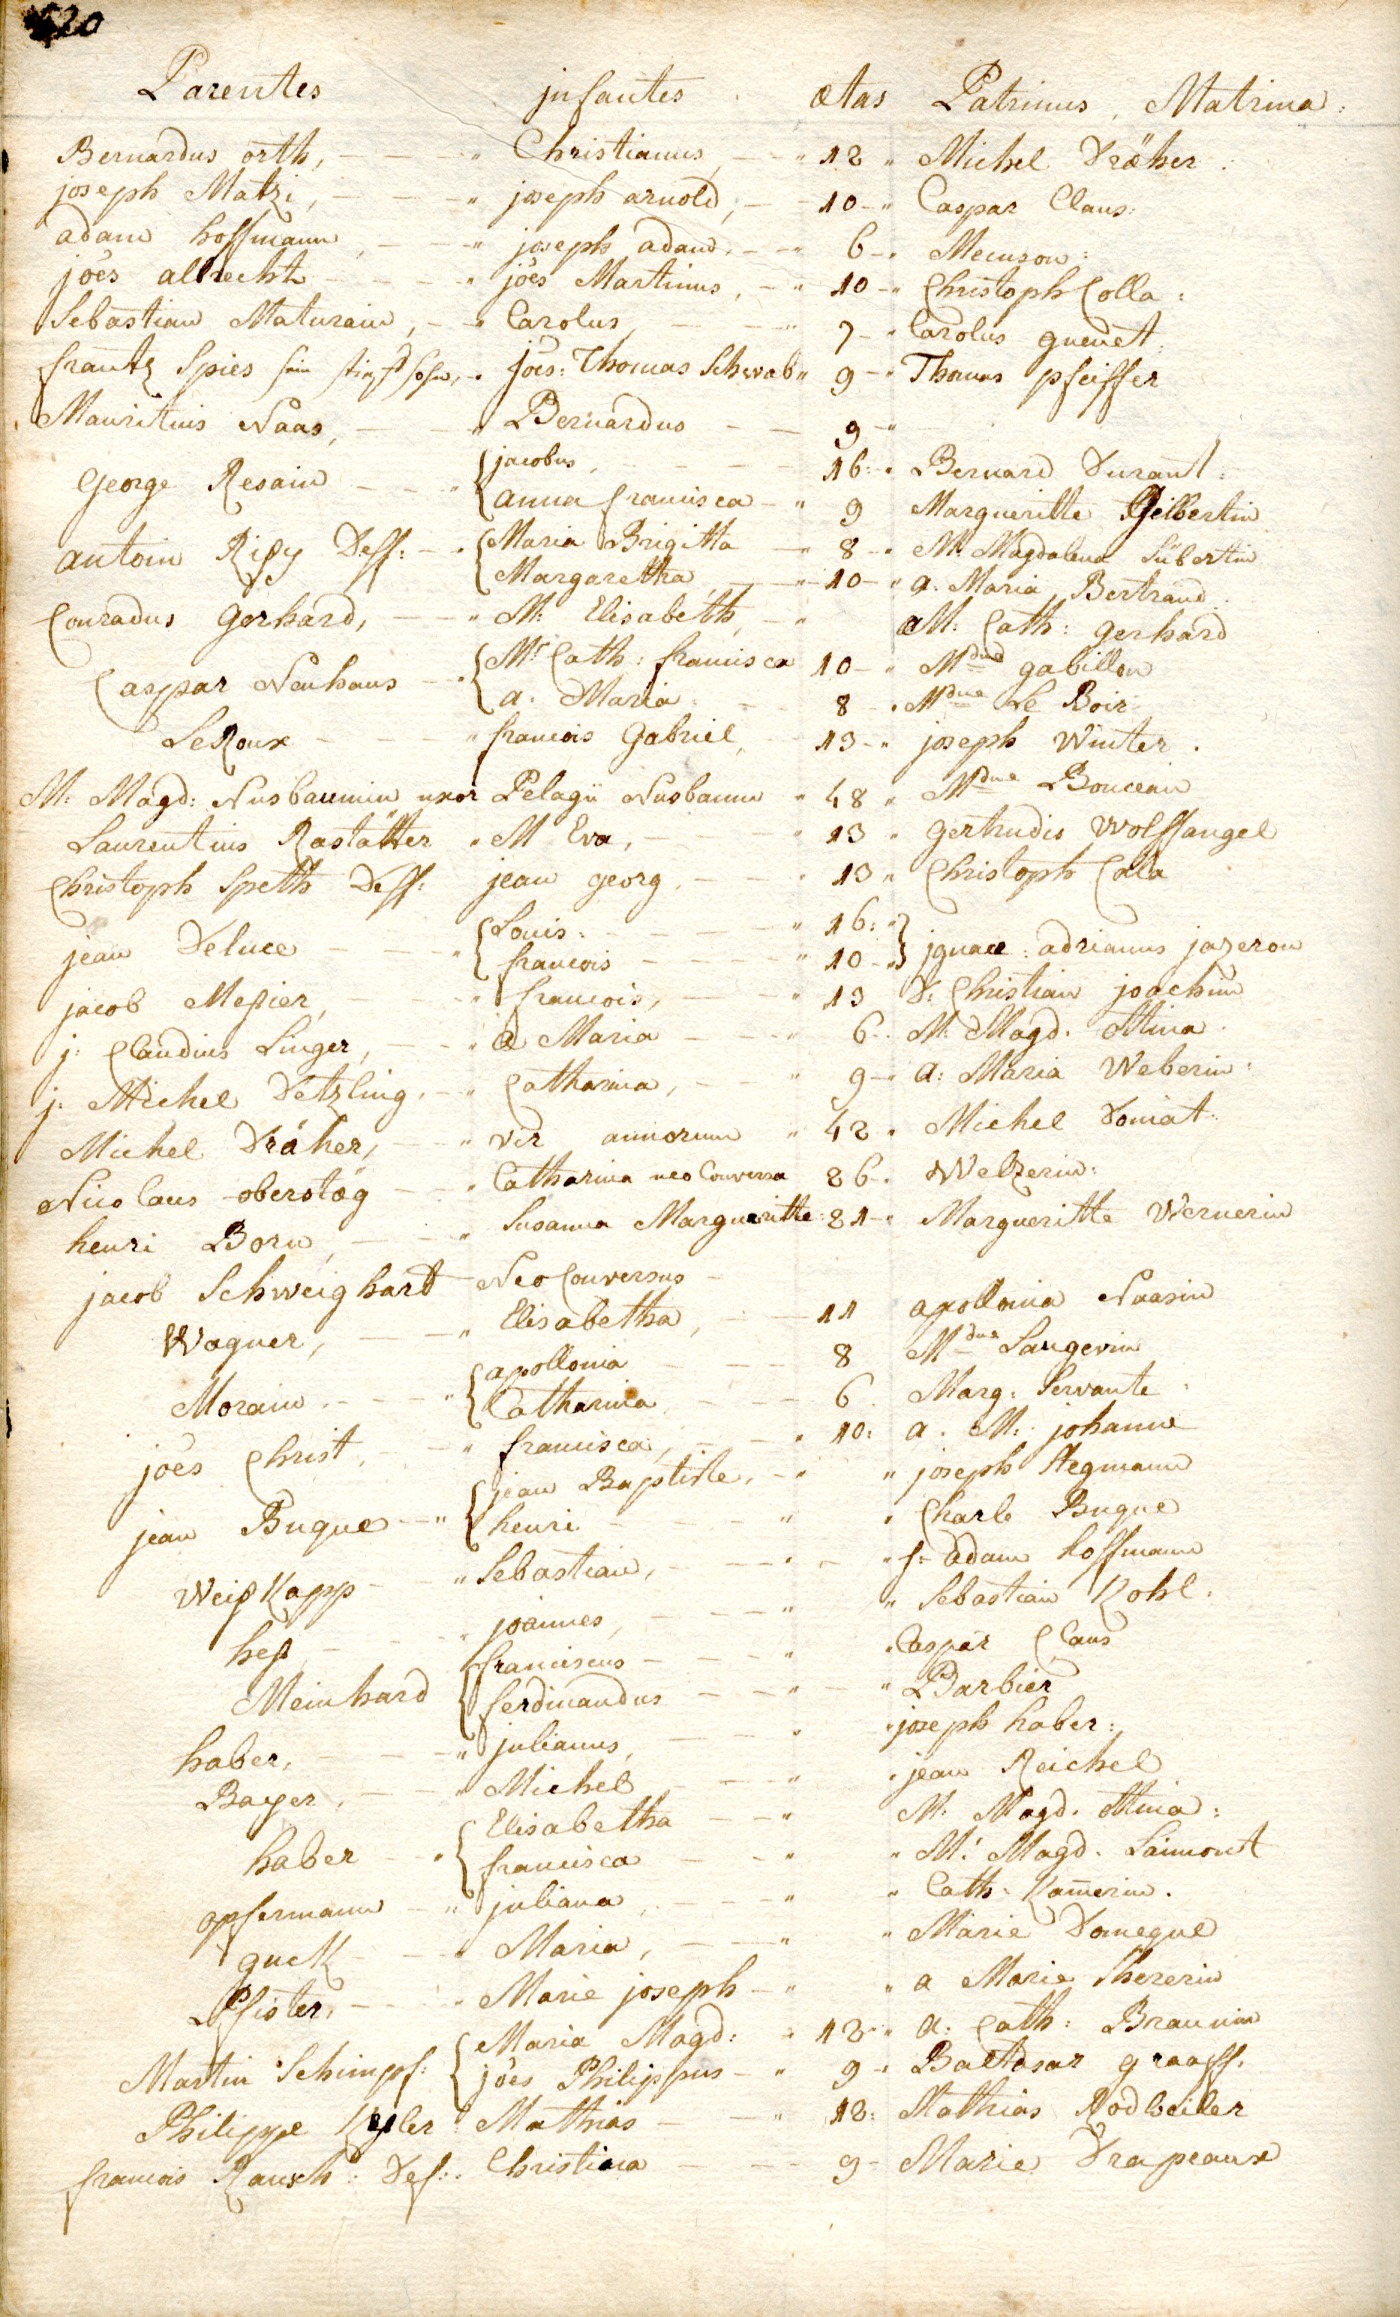 520
Parentes jnfantes ætas Patrinus, Matrina:
Bernardus orth, Christianus 12 Michel Dräher
joseph Matzi, joseph arnold, 10 Caspar Claus:
adam hoffmann, joseph adam, 6 Meinson:
jöes albrecht jöes Martinus, 10 Christoph Colla:
Sebastian Maturain, Carolus, 7 Carolus guenet.
frantz Spies sein stiefsohn, jöes: Thomas Schwab 9 Thomas pfeiffer
Mauritius Naas, Bernardus 9
George Resain jacobus, 16: Bernard Durant:
anna francisca 9 Margueritte Gilbertin
antoin Rissy Deff: Maria Brigitta 8 M. Magdalena Sübertin
Margaretha 10 a. Maria Bertrand.
Conradus Gerhard, M: Elisabeth, M: Cath: gerhard
Caspar Neuhaus M: Cath: francisca 10 Mdme gabillon
a. Maria 8 Mdme Le Boir
LeRoux francois Gabriel, 13 joseph Winter.
M: Magd: Nusbaumin uxor Pelagii Nusbaum 48 Mdme Bouceau
Laurentius Rastätter M Eva, 13 gertrudis Wolffangel
Christoph Speth Deff: jean georg, 13 Christoph Cala
jean Deluce Louis: 16:
francois 10 jgnace: adrianus jazeron
jacob Messier, francois, 13 D: Christian joachim
j: Claudius Linger, a Maria 6 M: Magd. Ottina
j: Michel Detzling. Catharina, 9 a: Maria Weberin:
Michel Dräher, vir annorum 42 Michel Doniat:
Nicolaus oberstög Catharina neo Conversa 26 Welzerin:
henri Born, Susanna Margueritte: 21 Margueritte Wernerin
jacob Schweighart Neo Conversus
Wagner, Elisabetha, 11 apollonia Naasin
Morain, apollonia 8 Mdme Langevin
Catharina 6 Marg: Servante:
jöes Christ, francisca, 10: a. M: johanne
jean Bugue jean Baptiste, joseph Stegmann
henri Charle Bugue
Weiss Kopp Sebastian, f: adam hoffmann
hess joannes, Sebastian Kohl.
Meinhard franciscus Caspar Claus
ferdinandus Barbier
haber, julianus, joseph haber:
Bayer, Michel jean Reichel
haber Elisabetha M: Magd. Ottina:
francisca M: Magd. Laimont
opfermann juliana, Cath. Kamerin.
guck Maria, Marie Domegue
Pfister, Marie joseph a Marie Shererin
Martin Schimpf: Maria Magd: 12 a: Cath: Braunin
jöes Philippus 9 Baltasar graaff.
Philippe Kesler Mathias 12: Mathias Rodweiler
francois Rausch: Def: Christina 9 Marie Drapeaux